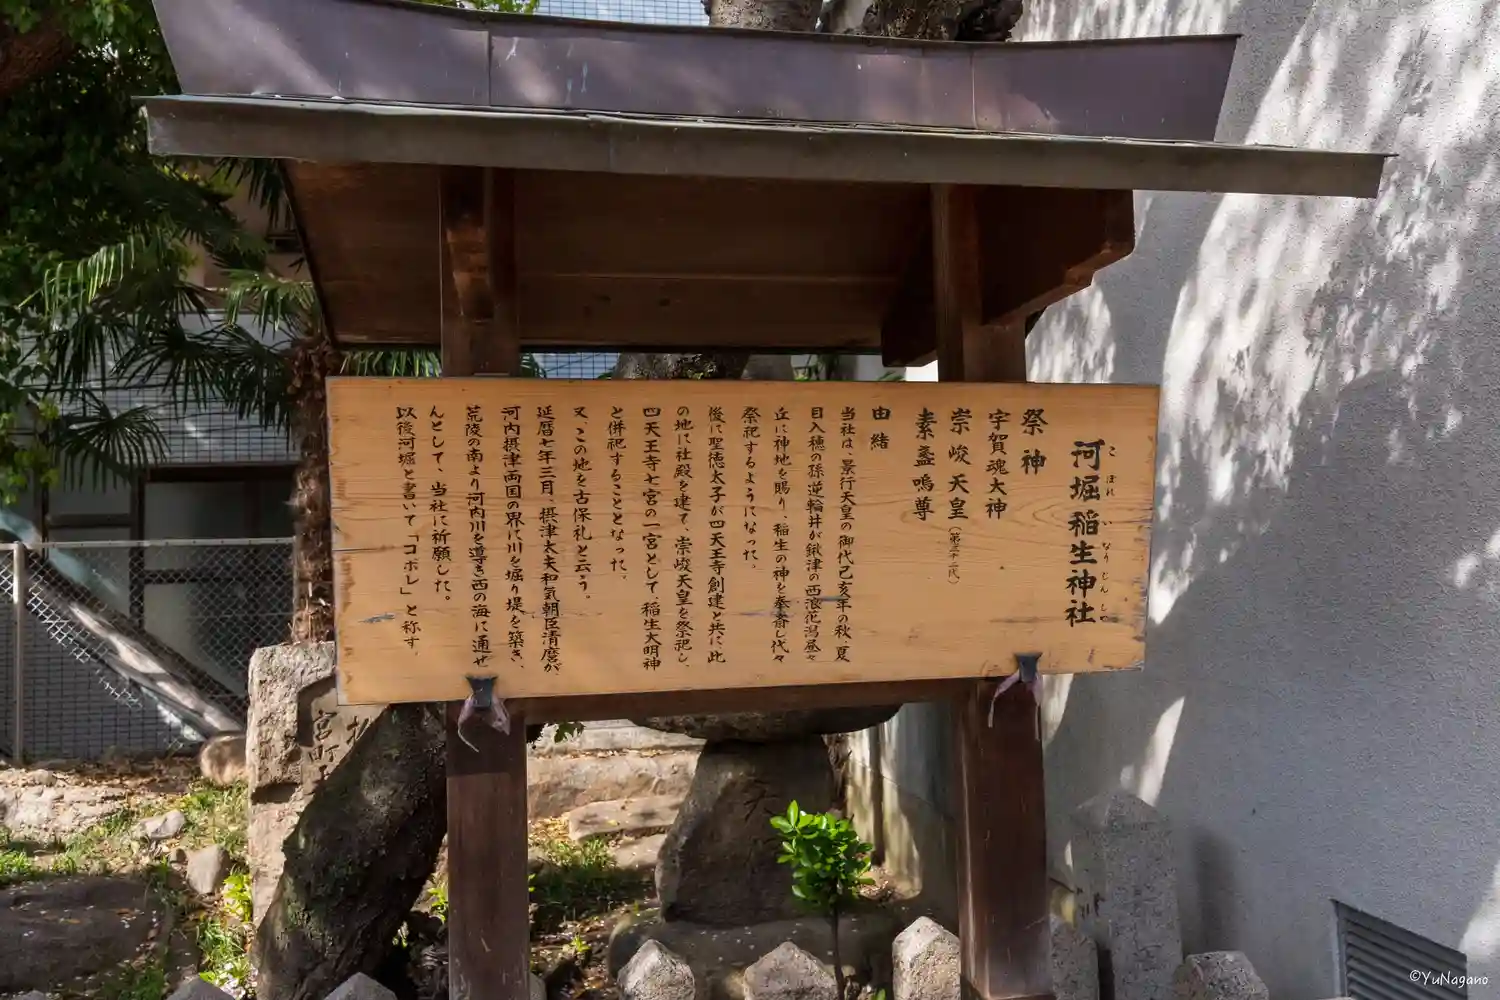 河堀稲生神社
こぼれ いなりじんしゃ
祭神
宇賀魂大神
崇峻天皇（第三十二代）
素盞嗚尊
由緒
当社は、景行天皇の御代己亥年の秋、夏
目入穂の孫逆輪井が鍬津の西浪花潟昼々
丘に神地を賜り、稲生の神を奉斎し代々
祭祀するようになった。
後に聖徳太子が四天王寺創建と共に此
の地に社殿を建て、崇峻天皇を祭祀し、
四天王寺七宮の一宮として、稲生大明神
と併祀することとなった。
又、この地を古保礼と云う。
延暦七年三月、摂津太夫和気朝臣清麿が、
河内摂津両国の界に川を堀り堤を築き、
荒陵の南より河内川を導き西の海に通せ
んとして、当社に祈願した。
以後河堀と書いて「コボレ」と称す。
宮町
天
©YuNagano